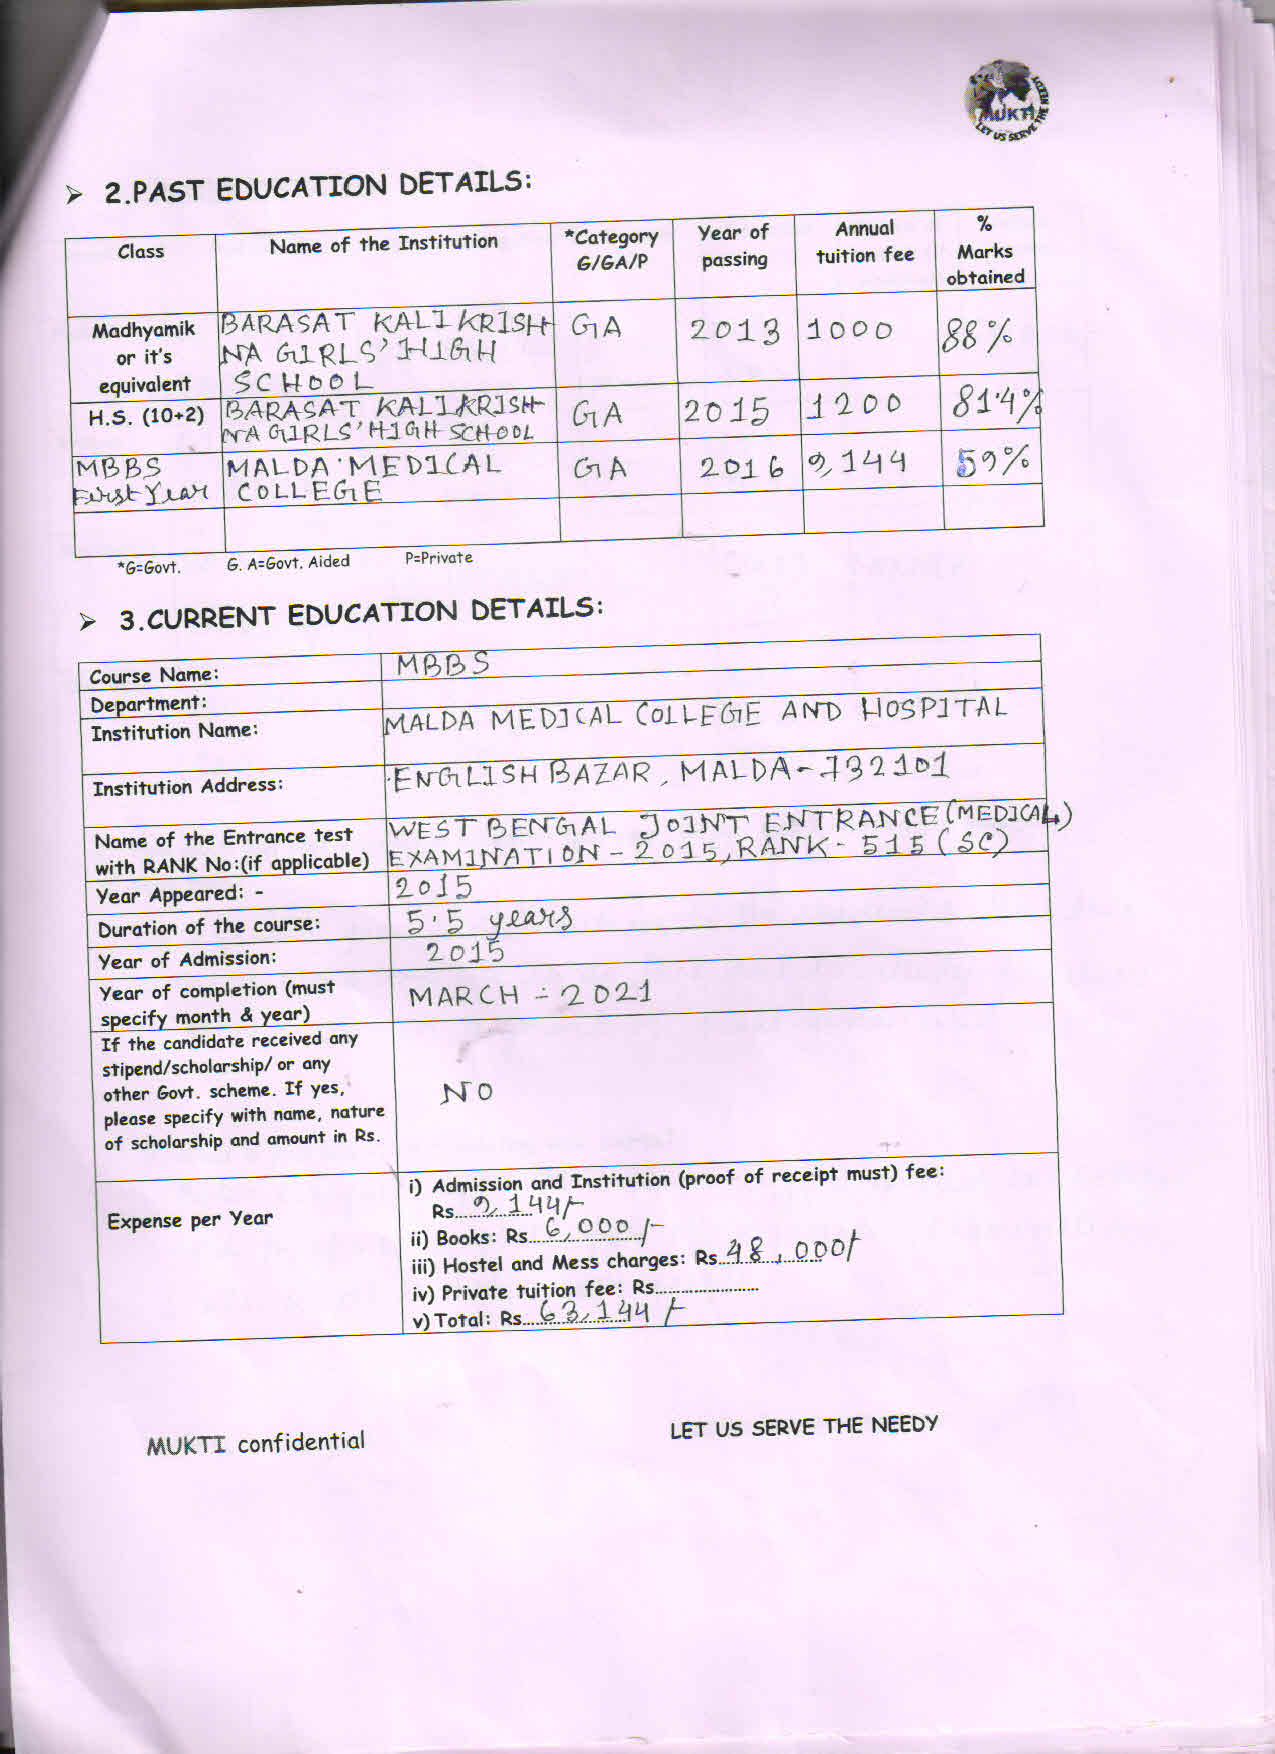 MUKTI
LET US SERVE THE NEEDY
➢ 2.PAST EDUCATION DETAILS:
Class Name of the Institution *Category G/GA/P Year of passing Annual tuition fee % Marks obtained
Madhyamik or it's equivalent BARASAT KALIKRISH NA GIRLS' HIGH SCHOOL GA 2013 1000 88%
H.S. (10+2) BARASAT KALIKRISH NA GIRLS' HIGH SCHOOL GA 2015 1200 81.4%
MBBS First Year MALDA MEDICAL COLLEGE GA 2016 9,144 59%
*G=Govt. G. A=Govt. Aided P=Private
➢ 3.CURRENT EDUCATION DETAILS:
Course Name: MBBS
Department:
Institution Name: MALDA MEDICAL COLLEGE AND HOSPITAL
Institution Address: ENGLISH BAZAR, MALDA-732101
Name of the Entrance test WEST BENGAL JOINT ENTRANCE (MEDICAL)
with RANK No:(if applicable) EXAMINATION - 2015, RANK - 515 (SC)
Year Appeared: - 2015
Duration of the course: 5.5 years
Year of Admission: 2015
Year of completion (must
specify month & year) MARCH - 2021
If the candidate received any
stipend/scholarship/ or any
other Govt. scheme. If yes,
please specify with name, nature
of scholarship and amount in Rs.
NO
Expense per Year
i) Admission and Institution (proof of receipt must) fee:
Rs......9,144/-
ii) Books: Rs...6,000/-
iii) Hostel and Mess charges: Rs...48,000/-
iv) Private tuition fee: Rs........................
v) Total: Rs...63,144/-
MUKTI confidential LET US SERVE THE NEEDY